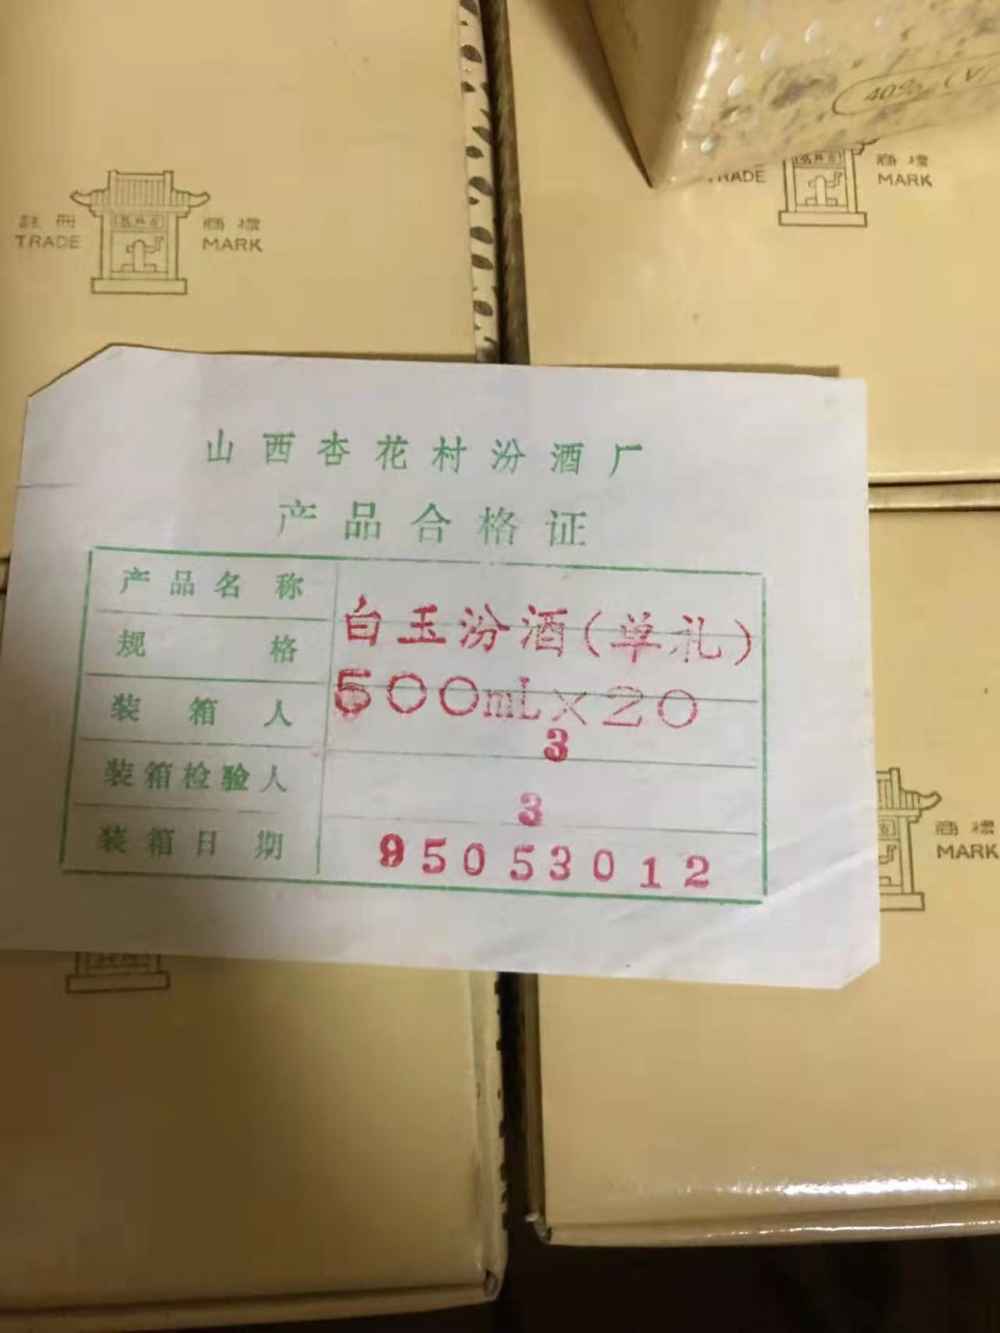 40% (V
註冊 商標
TRADE MARK
商標
TRADE MARK
山西杏花村汾酒厂
产品合格证
产品名称 白玉汾酒(单礼)
规格 500mL×20
装箱人 3
装箱检验人 3
装箱日期 95053012
商標
MARK